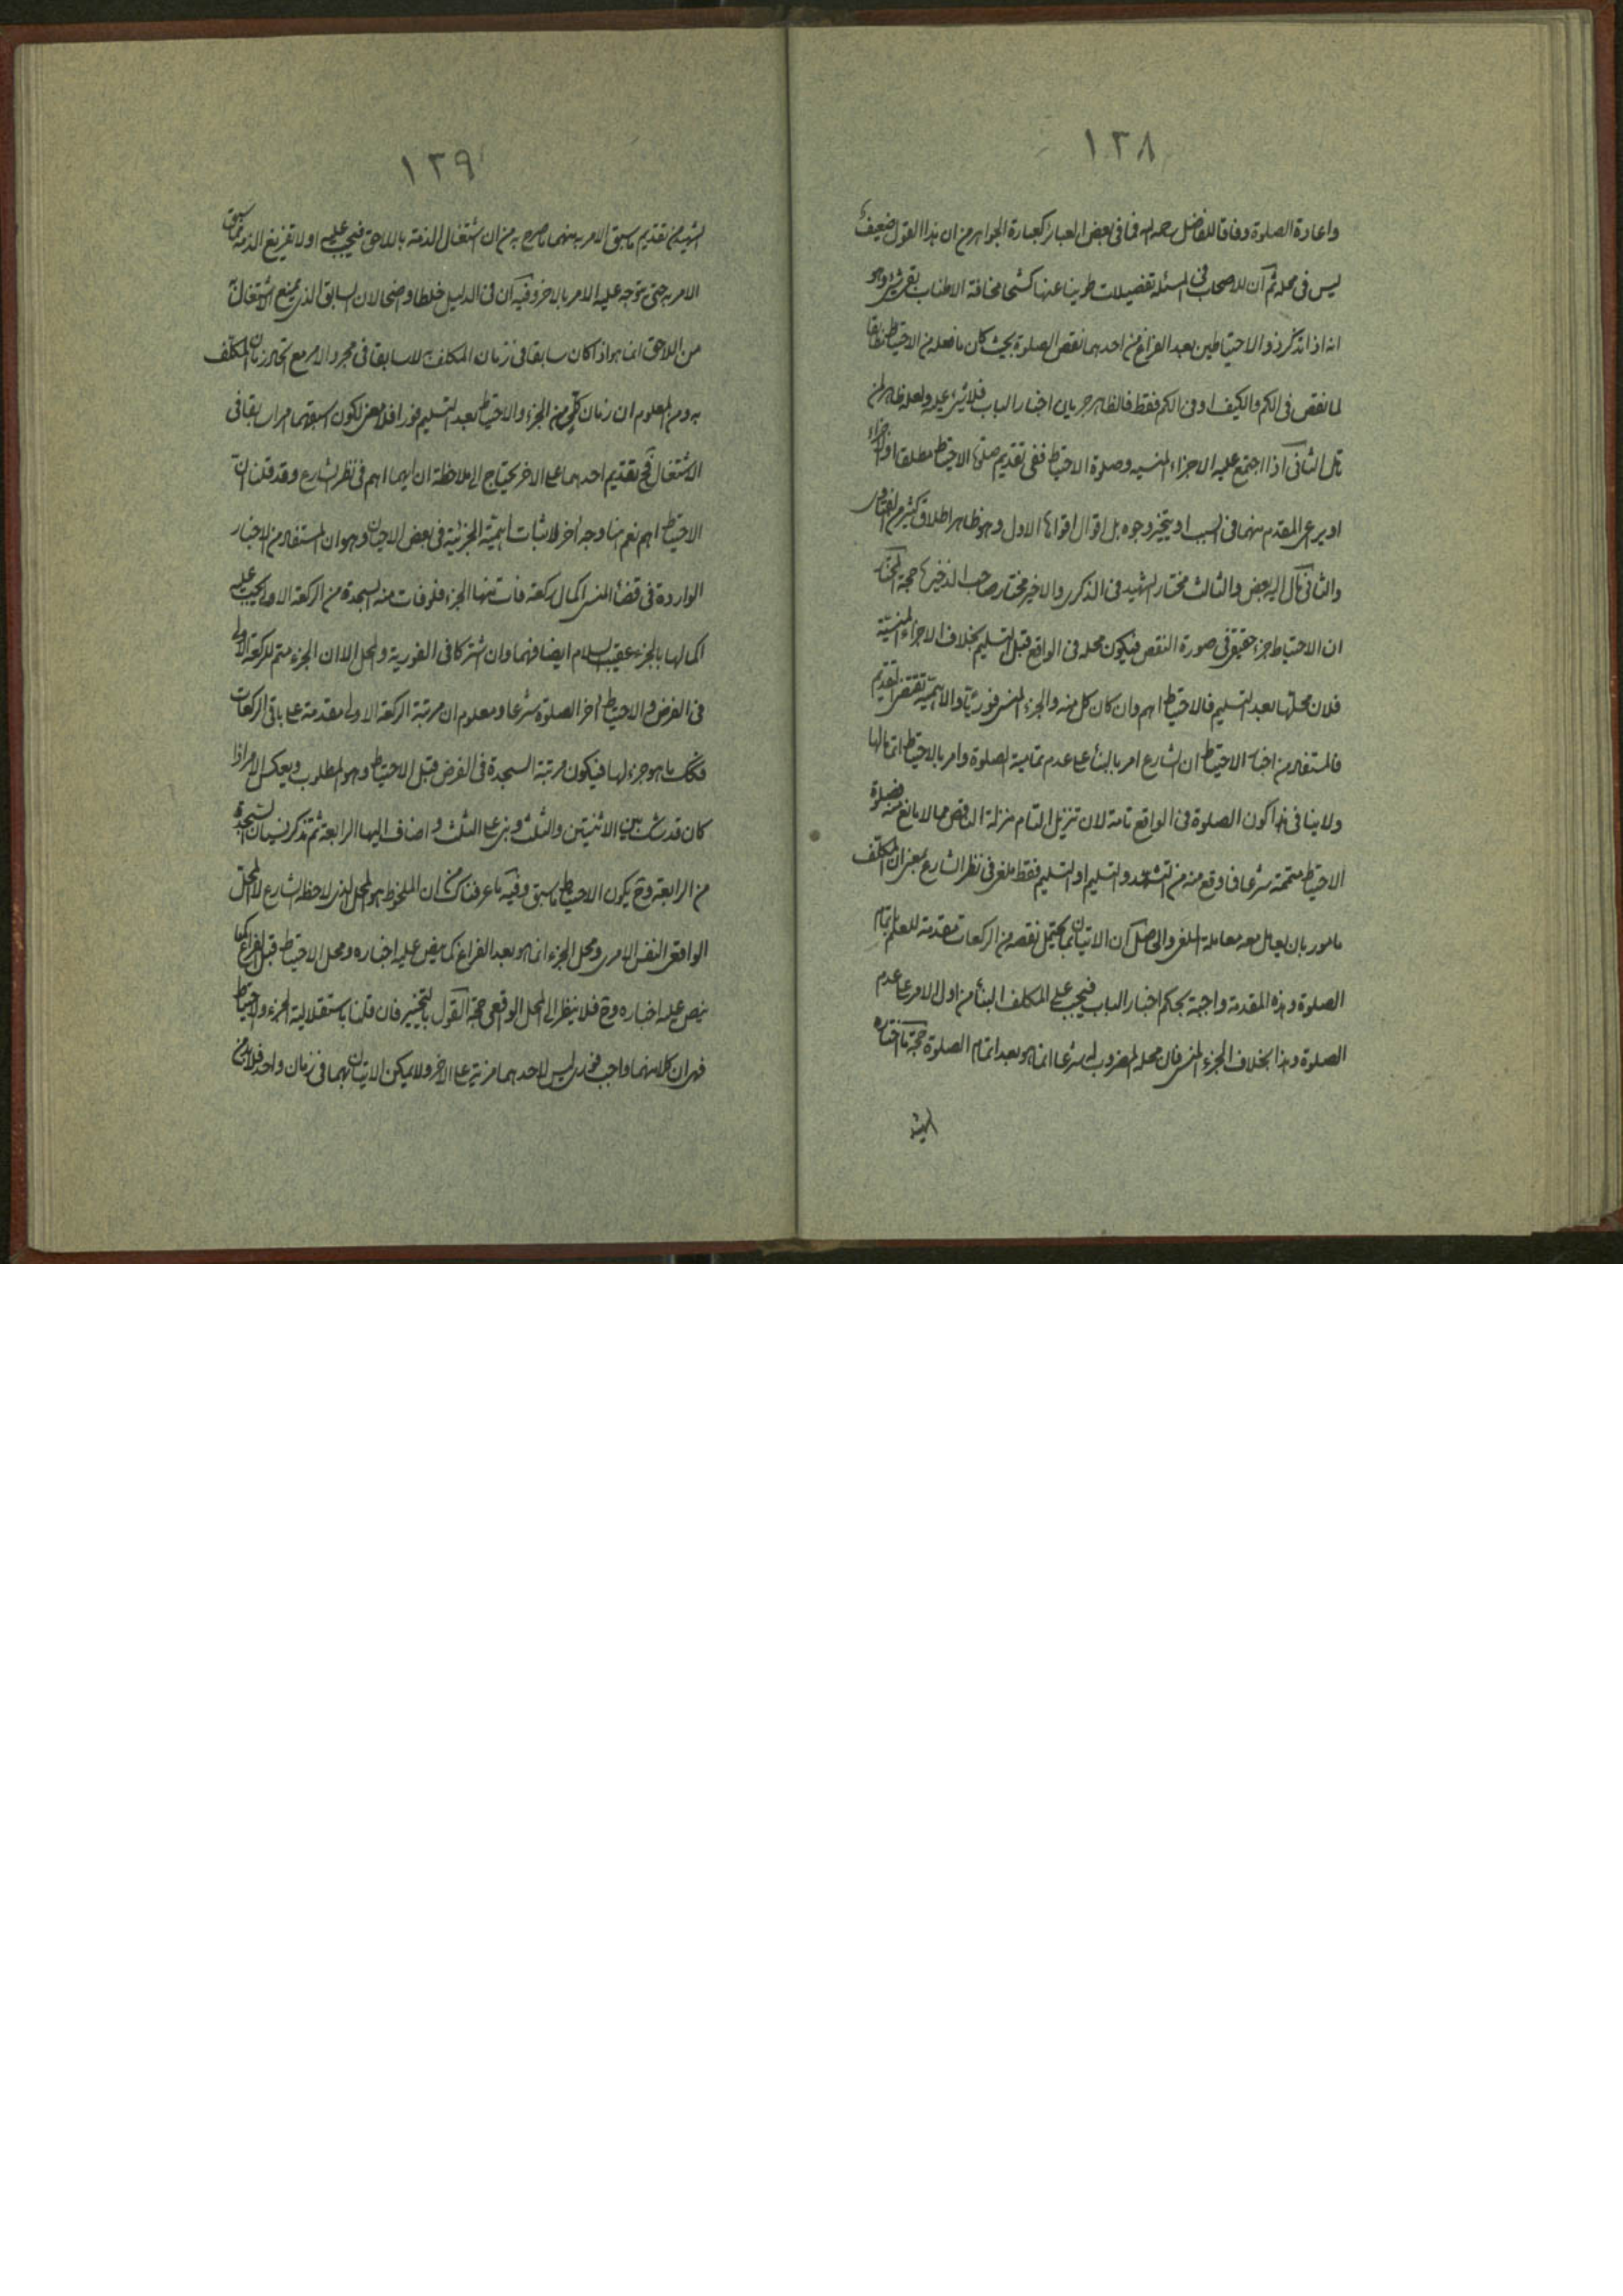 ١٢٨
واعادة الصلوة وفاقا للفاضل رحمه الله فما فى بعض العبائر كعبارة الجواهر من ان هذا القول ضعيف
ليس فى محله ثم ان للاصحاب فى المسئلة تفضيلات طوينا عنها كشحا مخافة الاطناب بقى شئ وهو
انه اذا تذكر ذو الاحتياطين بعد الفراغ من احدهما نقص الصلوة بحيث كان ما فعله من الاحتياط مطابقا
لما نقص فى الكم والكيف او فى الكم فقط فالظاهر جريان اخبار الباب فلا شئ عليه ولعله ظاهر لمن
تامل الثانى اذا اجتمع عليه الاجزاء المنسيه وصلوة الاحتياط ففى تقديم صلوة الاحتياط مطلقا او الاجزاء
او يراعى المقدم منهما فى السبب او يتخير وجوه بل اقوال اقواها الاول وهو ظاهر اطلاق كثير من الفتاوى
والثانى مال اليه بعض والثالث مختار الشهيد فى الذكرى والاخير مختار صاحب الذخيرة حجة المختار
ان الاحتياط جزء حقيقى فى صورة النقص فيكون محله فى الواقع قبل التسليم بخلاف الاجزاء المنسية
فلان محلها بعد التسليم فالاحتياط اهم وان كان كل منه والجزء المنسى فوريا والاهمية تقتضى التقديم
فالمستفاد من اخبار الاحتياط ان الشارع امر بالبناء على عدم تمامية الصلوة وامر بالاحتياط اتماما لها
ولا ينافى هذا كون الصلوة فى الواقع تامة لان تنزيل التام منزلة الناقص مما لا مانع منه فصلوة
الاحتياط متممة شرعا فما وقع منه من التشهد والتسليم او التسليم فقط ملغى فى نظر الشارع بمعنى ان المكلف
مامور بان يعامل معه معاملة الملغى والحاصل ان الاتيان بما يحتمل نقصه من الركعات مقدمة للعلم باتمام
الصلوة وهذه المقدمة واجبة بحكم اخبار الباب فيجب على المكلف البناء من اول الامر على عدم
الصلوة وهذا بخلاف الجزء المنسى فان محله المضروب له شرعا انما هو بعد اتمام الصلوة حجة ما اختاره
الشهيد
١٢٩
الشهيد من تقديم ما سبق الامر به منهما ما صرح به من ان اشتغال الذمة باللاحق فيجب عليه اولا تفريغ الذمة مما سبق
الامر به حتى يتوجه عليه الامر بالاخر وفيه ان فى الدليل خلطا واضحا لان السابق الذى يمنع الاشتغال
من اللاحق انما هو اذا كان سابقا فى زمان المكلف به لا سابقا فى مجرد الامر مع اتحاد زمان المكلف
به ومن المعلوم ان زمان كل من الجزء والاحتياط بعد التسليم فورا فلا معنى لكون اسبقهما امرا سابقا فى
الاشتغال فح تقديم احدهما على الاخر يحتاج الى ملاحظة ان ايهما اهم فى نظر الشارع وقد قلنا ان
الاحتياط اهم نعم هنا وجه اخر لاثبات اهمية الجزئية فى بعض الاحيان وهو ان المستفاد من الاخبار
الواردة فى قضاء المنسى اكمال ركعة فات منها الجزء فلو فات منه السجدة من الركعة الاولى يجب عليه
اكمالها بالجزء عقيب السلام ايضا فهما وان اشتركا فى الفورية والمحل الا ان الجزء متمم للركعة الاولى
فى الفرض والاحتياط اخر الصلوة شرعا ومعلوم ان مرتبة الركعة الاولى مقدمة على باقى الركعات
فكك ما هو جزء لها فيكون مرتبة السجدة فى الفرض قبل الاحتياط وهو المطلوب وبعكس الامر اذا
كان قد شك بين الاثنتين والثلث وبنى على الثلث واضاف اليها الرابعة ثم تذكر نسيان السجدة
من الرابعة وح يكون الاحتياط ما سبق وفيه ما عرفناك من ان الملحوظ هو المحل الذى لاحظه الشارع لا المحل
الواقعى النفس الامرى ومحل الجزء انما هو بعد الفراغ كما ينص عليه اخباره ومحل الاحتياط قبل الفراغ كما
ينص عليه اخباره وح فلا ينظر الى المحل الواقعى حجة القول بالتخيير فان قلنا باستقلالية الجزء والاحتياط
فهى ان كلا منهما واجب فورى ليس لاحدهما مزية على الاخر ولا يمكن الاتيان بهما فى زمان واحد فلا بد من